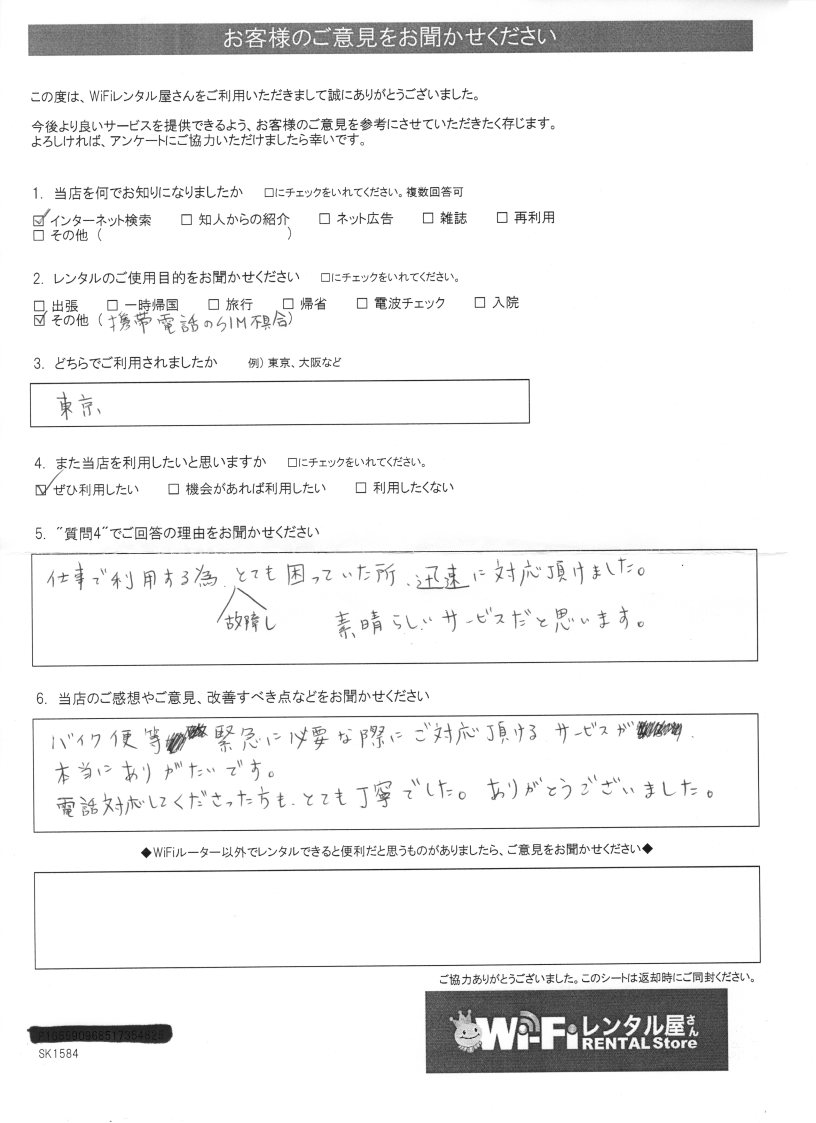 お客様のご意見をお聞かせください
この度は、WiFiレンタル屋さんをご利用いただきまして誠にありがとうございました。
今後より良いサービスを提供できるよう、お客様のご意見を参考にさせていただきたく存じます。
よろしければ、アンケートにご協力いただけましたら幸いです。
1. 当店を何でお知りになりましたか □にチェックをいれてください。複数回答可
☑インターネット検索 □ 知人からの紹介 □ ネット広告 □ 雑誌 □ 再利用
□ その他 ( )
2. レンタルのご使用目的をお聞かせください □にチェックをいれてください。
□ 出張 □ 一時帰国 □ 旅行 □ 帰省 □ 電波チェック □ 入院
☑ その他 (携帯電話のSIM不具合)
3. どちらでご利用されましたか 例) 東京、大阪など
東京、
4. また当店を利用したいと思いますか □にチェックをいれてください。
☑ ぜひ利用したい □ 機会があれば利用したい □ 利用したくない
5. "質問4"でご回答の理由をお聞かせください
仕事で利用する為、とても困っていた所、迅速に対応頂けました。
故障し 素晴らしいサービスだと思います。
6. 当店のご感想やご意見、改善すべき点などをお聞かせください
バイク便等 緊急に必要な際にご対応頂けるサービスが、
本当にありがたいです。
電話対応してくださった方も、とても丁寧でした。ありがとうございました。
◆WiFiルーター以外でレンタルできると便利だと思うものがありましたら、ご意見をお聞かせください◆
ご協力ありがとうございました。このシートは返却時にご同封ください。
Wi-Fiレンタル屋さん
RENTAL Store
SK1584